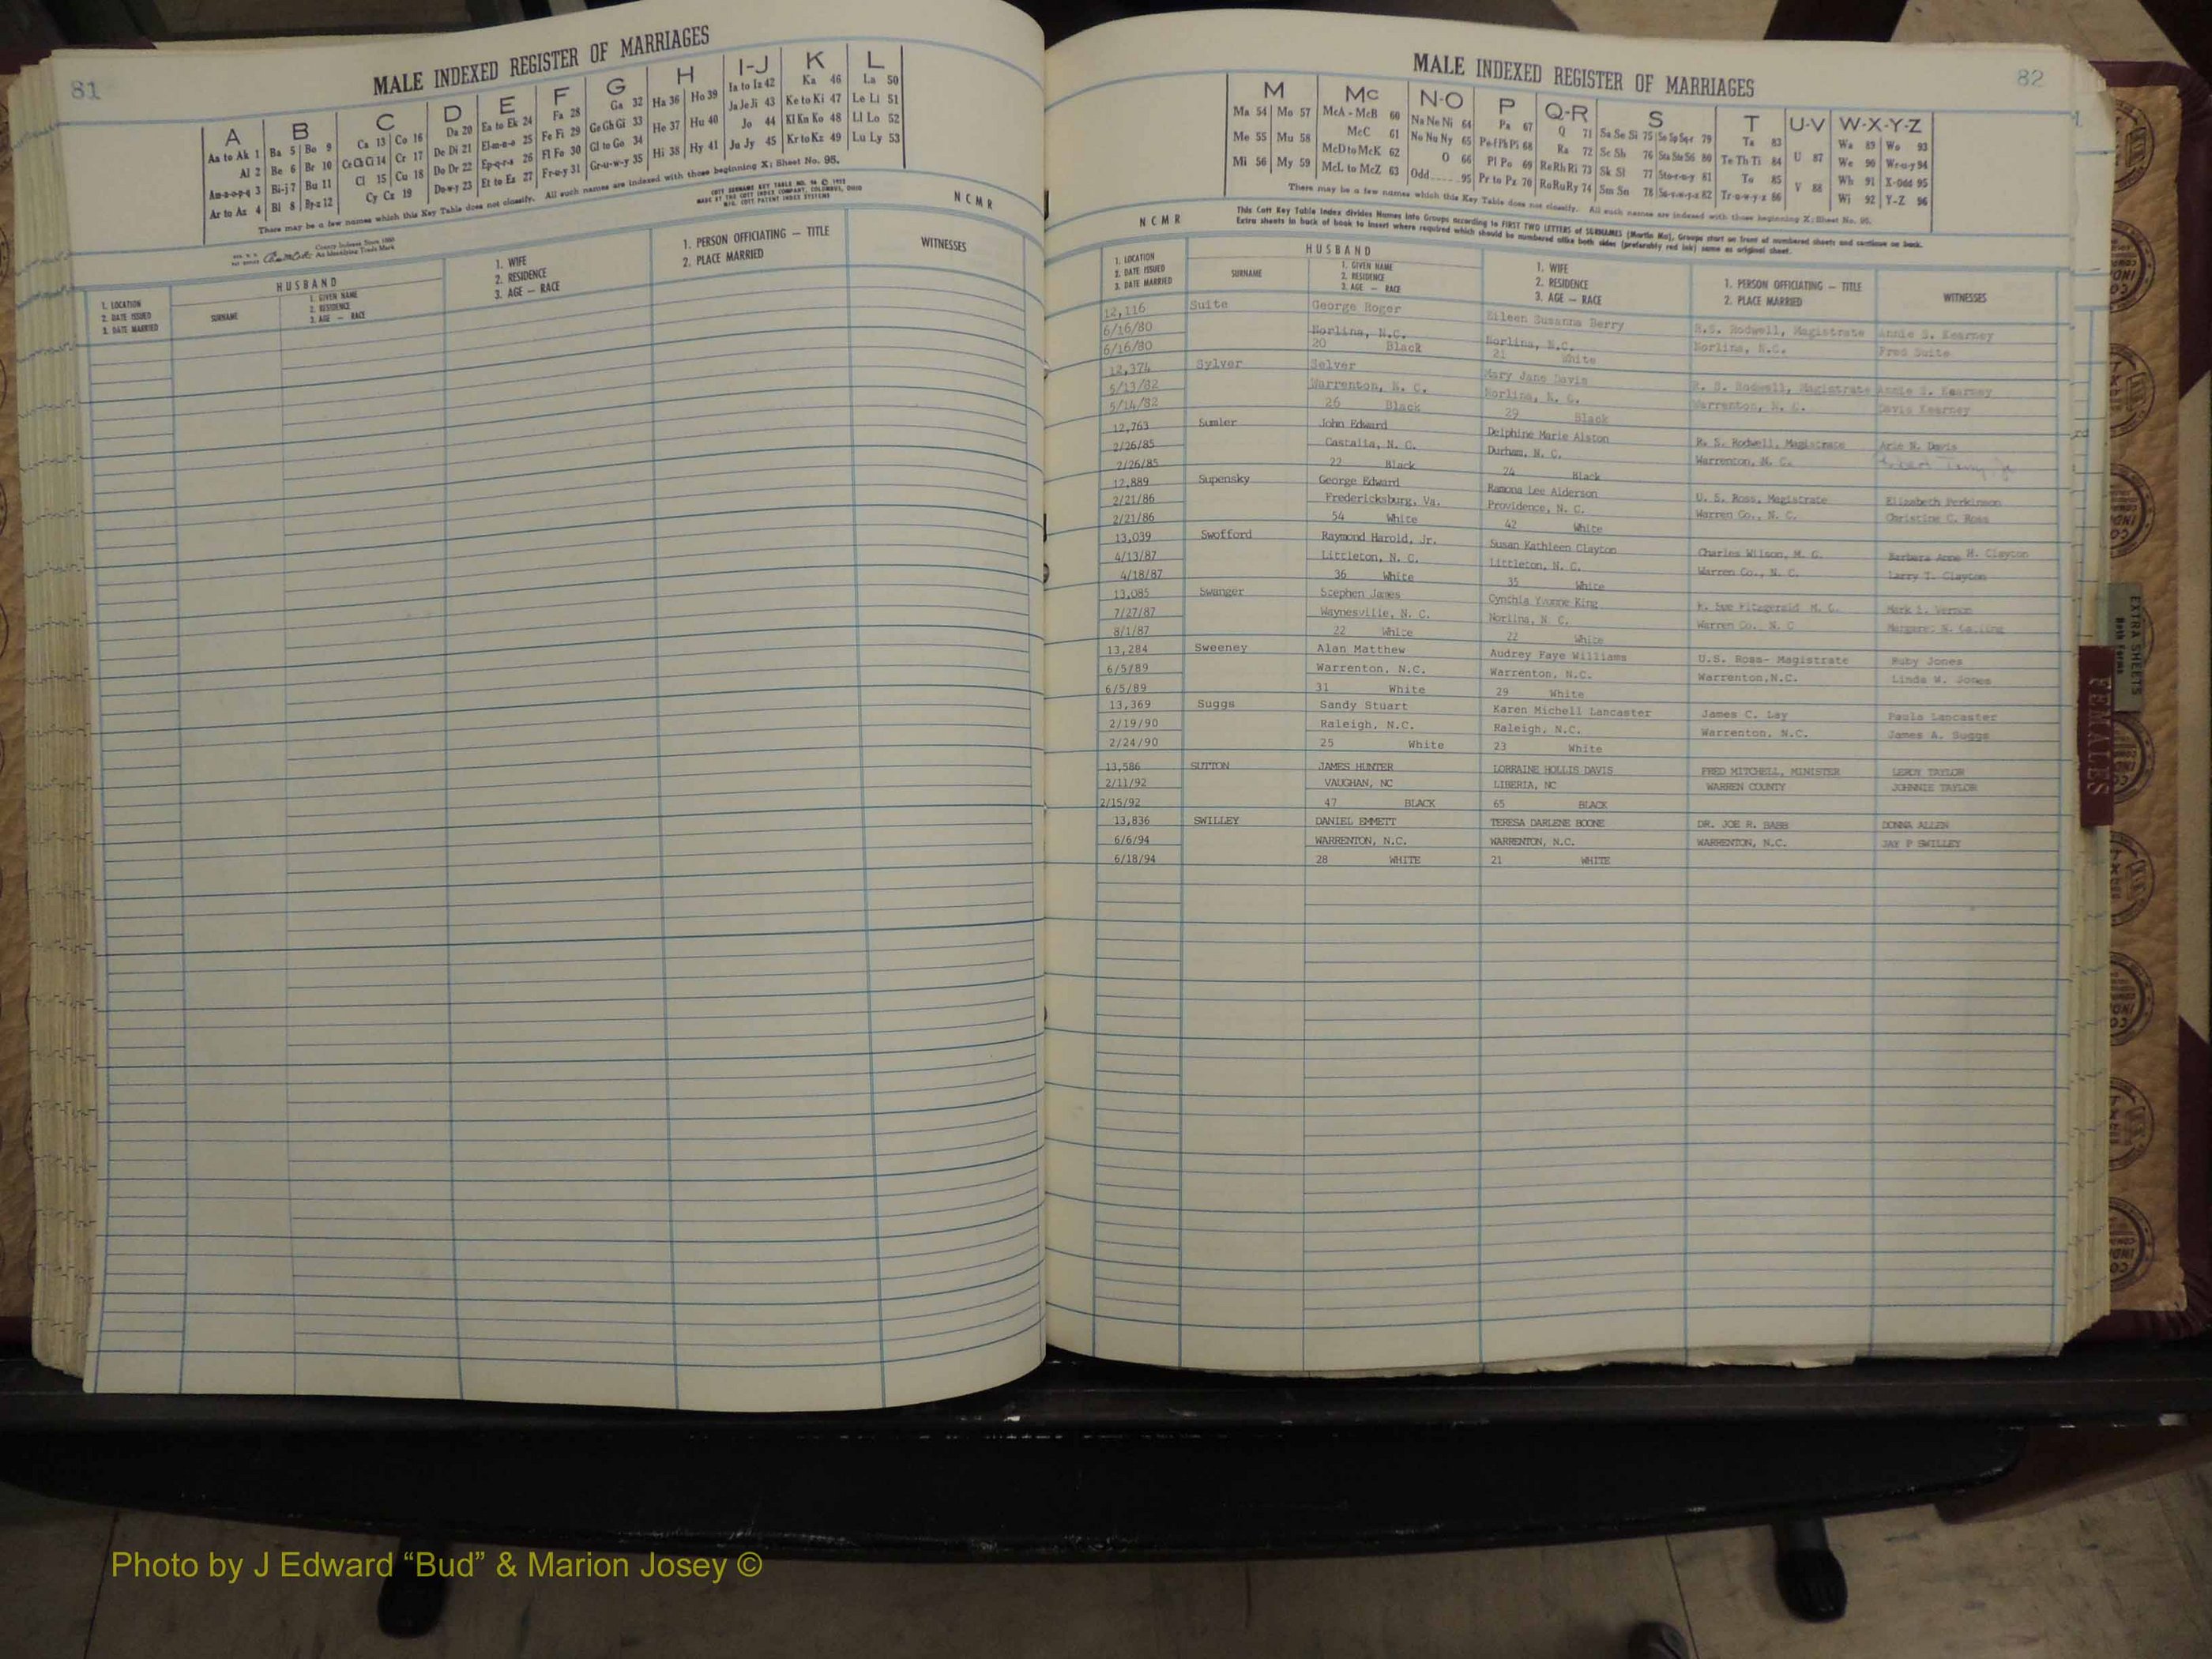 81
MALE INDEXED REGISTER OF MARRIAGES
A B C D E F G H I-J K L
Aa to Ak 1 Ba 5 Bo 9 Ca 13 Co 16 Da 20 Ea to Ek 24 Fa 28 Ga 32 Ha 36 Ho 39 Ia to Iz 42 Ka 46 La 50
Al 2 Be 6 Br 10 Ce Ch Ci 14 Cr 17 De Di 21 El-m-n-o 25 Fe Fi 29 Ge Gh Gi 33 He 37 Hu 40 Ja Je Ji 43 Ke to Ki 47 Le Li 51
Am-n-o-p-q 3 Bi-j 7 Bu 11 Cl 15 Cu 18 Do Dr 22 Ep-q-r-s 26 Fl Fo 30 Gl to Go 34 Hi 38 Hy 41 Jo 44 Kl Kn Ko 48 Ll Lo 52
Ar to Az 4 Bl 8 By-z 12 Cy Cz 19 Du-w-y 23 Et to Ez 27 Fr-u-y 31 Gr-u-w-y 35 Ju Jy 45 Kr to Kz 49 Lu Ly 53
There may be a few names which this Key Table does not classify. All such names are indexed with those beginning X; Sheet No. 95.
County Indexes Since 1888
An Identifying Trade Mark
MADE BY THE COTT INDEX COMPANY, COLUMBUS, OHIO
MFG. COTT PATENT INDEX SYSTEMS
NCMR
1. LOCATION
2. DATE ISSUED
3. DATE MARRIED
HUSBAND
SURNAME
1. GIVEN NAME
2. RESIDENCE
3. AGE — RACE
1. WIFE
2. RESIDENCE
3. AGE — RACE
1. PERSON OFFICIATING — TITLE
2. PLACE MARRIED
WITNESSES
82
MALE INDEXED REGISTER OF MARRIAGES
M Mc N-O P Q-R S T U-V W-X-Y-Z
Ma 54 Mo 57 McA - McB 60 Na Ne Ni 64 Pa 67 Q 71 Sa Se Si 75 So Sp Sq-r 79 Ta 83 U 87 Wa 89 Wo 93
Me 55 Mu 58 McC 61 No Nu Ny 65 Pe-f Ph Pi 68 Ra 72 Sc Sh 76 Sta Ste Sti 80 Te Th Ti 84 V 88 We 90 Wr-u-y 94
Mi 56 My 59 McD to McK 62 O 66 Pl Po 69 Re Rh Ri 73 Sk Sl 77 Sto-r-u-y 81 To 85 Wh 91 X-Odd 95
McL to McZ 63 Odd 95 Pr to Pz 70 Ro Ru Ry 74 Sm Sn 78 Su-v-w-y-z 82 Tr-u-w-y-z 86 Wi 92 Y-Z 96
There may be a few names which this Key Table does not classify. All such names are indexed with those beginning X; Sheet No. 95.
NCMR
This Cott Key Table Index divides Names into Groups according to FIRST TWO LETTERS of SURNAMES (Martin Ma), Groups start on front of numbered sheets and continue on back.
Extra sheets in back of book to insert where required which should be numbered alike both sides (preferably red ink) same as original sheet.
1. LOCATION
2. DATE ISSUED
3. DATE MARRIED
HUSBAND
SURNAME
1. GIVEN NAME
2. RESIDENCE
3. AGE — RACE
1. WIFE
2. RESIDENCE
3. AGE — RACE
1. PERSON OFFICIATING — TITLE
2. PLACE MARRIED
WITNESSES
12,116 Suite George Roger Eileen Susanna Berry R.S. Rodwell, Magistrate Annie S. Kearney
6/16/80 Norlina, N.C. Norlina, N.C. Norlina, N.C. Fred Suite
6/16/80 20 Black 21 White
12,374 Sylver Selver Mary Jane Davis R. S. Rodwell, Magistrate Annie S. Kearney
5/13/82 Warrenton, N. C. Norlina, N. C. Warrenton, N. C. Davis Kearney
5/14/82 26 Black 29 Black
12,763 Sumler John Edward Delphine Marie Alston R. S. Rodwell, Magistrate Arie N. Davis
2/26/85 Castalia, N. C. Durham, N. C. Warrenton, N. C.
2/26/85 22 Black 24 Black
12,889 Supensky George Edward Ramona Lee Alderson U. S. Ross, Magistrate Elizabeth Perkinson
2/21/86 Fredericksburg, Va. Providence, N. C. Warren Co., N. C. Christine C. Ross
2/21/86 54 White 42 White
13,039 Swofford Raymond Harold, Jr. Susan Kathleen Clayton Charles Wilson, M. G. Barbara Anne H. Clayton
4/13/87 Littleton, N. C. Littleton, N. C. Warren Co., N. C. Larry T. Clayton
4/18/87 36 White 35 White
13,085 Swanger Stephen James Cynthia Yvonne King K. Sue Fitzgerald M. G. Mark L. Vernon
7/27/87 Waynesville, N. C. Norlina, N. C. Warren Co. N. C Margaret N.
8/1/87 22 White 22 White
13,284 Sweeney Alan Matthew Audrey Faye Williams U.S. Ross- Magistrate Ruby Jones
6/5/89 Warrenton, N.C. Warrenton, N.C. Warrenton,N.C. Linda W. Jones
6/5/89 31 White 29 White
13,369 Suggs Sandy Stuart Karen Michell Lancaster James C. Lay Paula Lancaster
2/19/90 Raleigh, N.C. Raleigh, N.C. Warrenton, N.C. James A. Suggs
2/24/90 25 White 23 White
13,586 SUTTON JAMES HUNTER LORRAINE HOLLIS DAVIS FRED MITCHELL, MINISTER LEROY TAYLOR
2/11/92 VAUGHAN, NC LIBERIA, NC WARREN COUNTY JOHNNIE TAYLOR
2/15/92 47 BLACK 65 BLACK
13,836 SWILLEY DANIEL EMMETT TERESA DARLENE BOONE DR. JOE R. BABB DONNA ALLEN
6/6/94 WARRENTON, N.C. WARRENTON, N.C. WARRENTON, N.C. JAY P SWILLEY
6/18/94 28 WHITE 21 WHITE
EXTRA SHEETS
Both Forms
FEMALES
Photo by J Edward “Bud” & Marion Josey ©